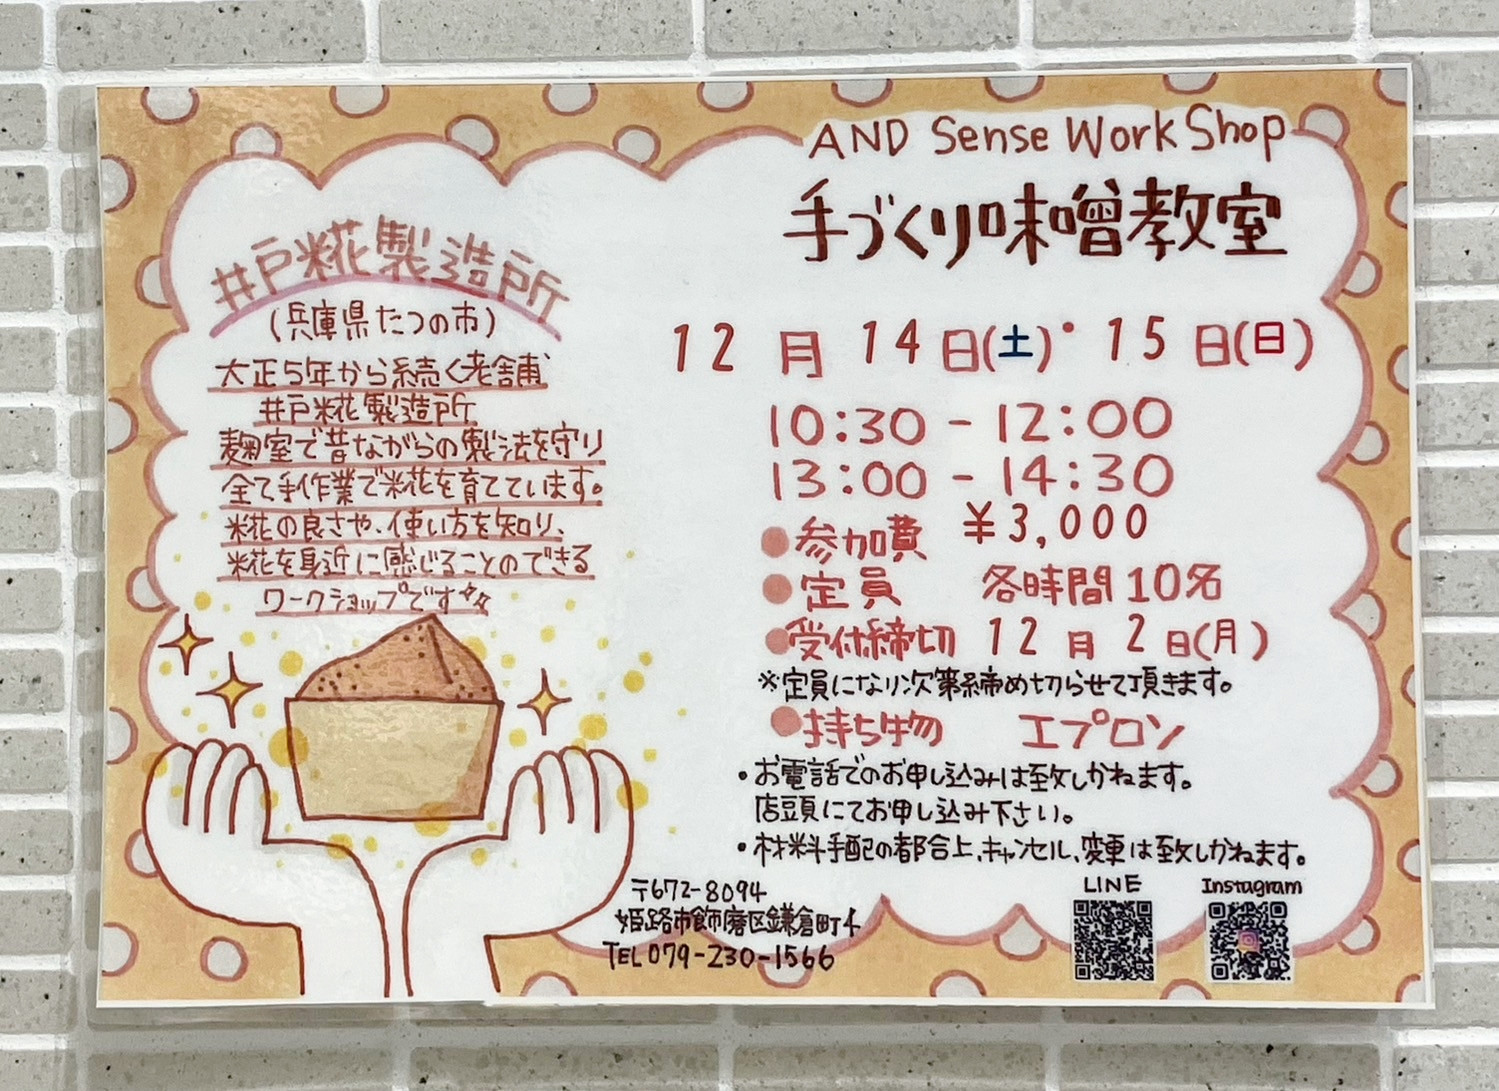 AND Sense Work Shop
手づくり味噌教室
井戸糀製造所
(兵庫県たつの市)
大正5年から続く老舗
井戸糀製造所
麹室で昔ながらの製法を守り
全て手作業で米花を育てています。
糀の良さや、使い方を知り、
糀を身近に感じることのできる
ワークショップです
12月14日(土)・15日(日)
10:30-12:00
13:00-14:30
●参加費 ¥3,000
●定員 各時間10名
●受付締切 12月2日(月)
※定員になり次第締め切らせて頂きます。
●持ち物 エプロン
・お電話でのお申し込みは致しかねます。
店頭にてお申し込み下さい。
・材料手配の都合上、キャンセル、変更は致しかねます。
LINE
Instagram
〒672-8094
姫路市飾磨区鎌倉町4
TEL 079-230-1566